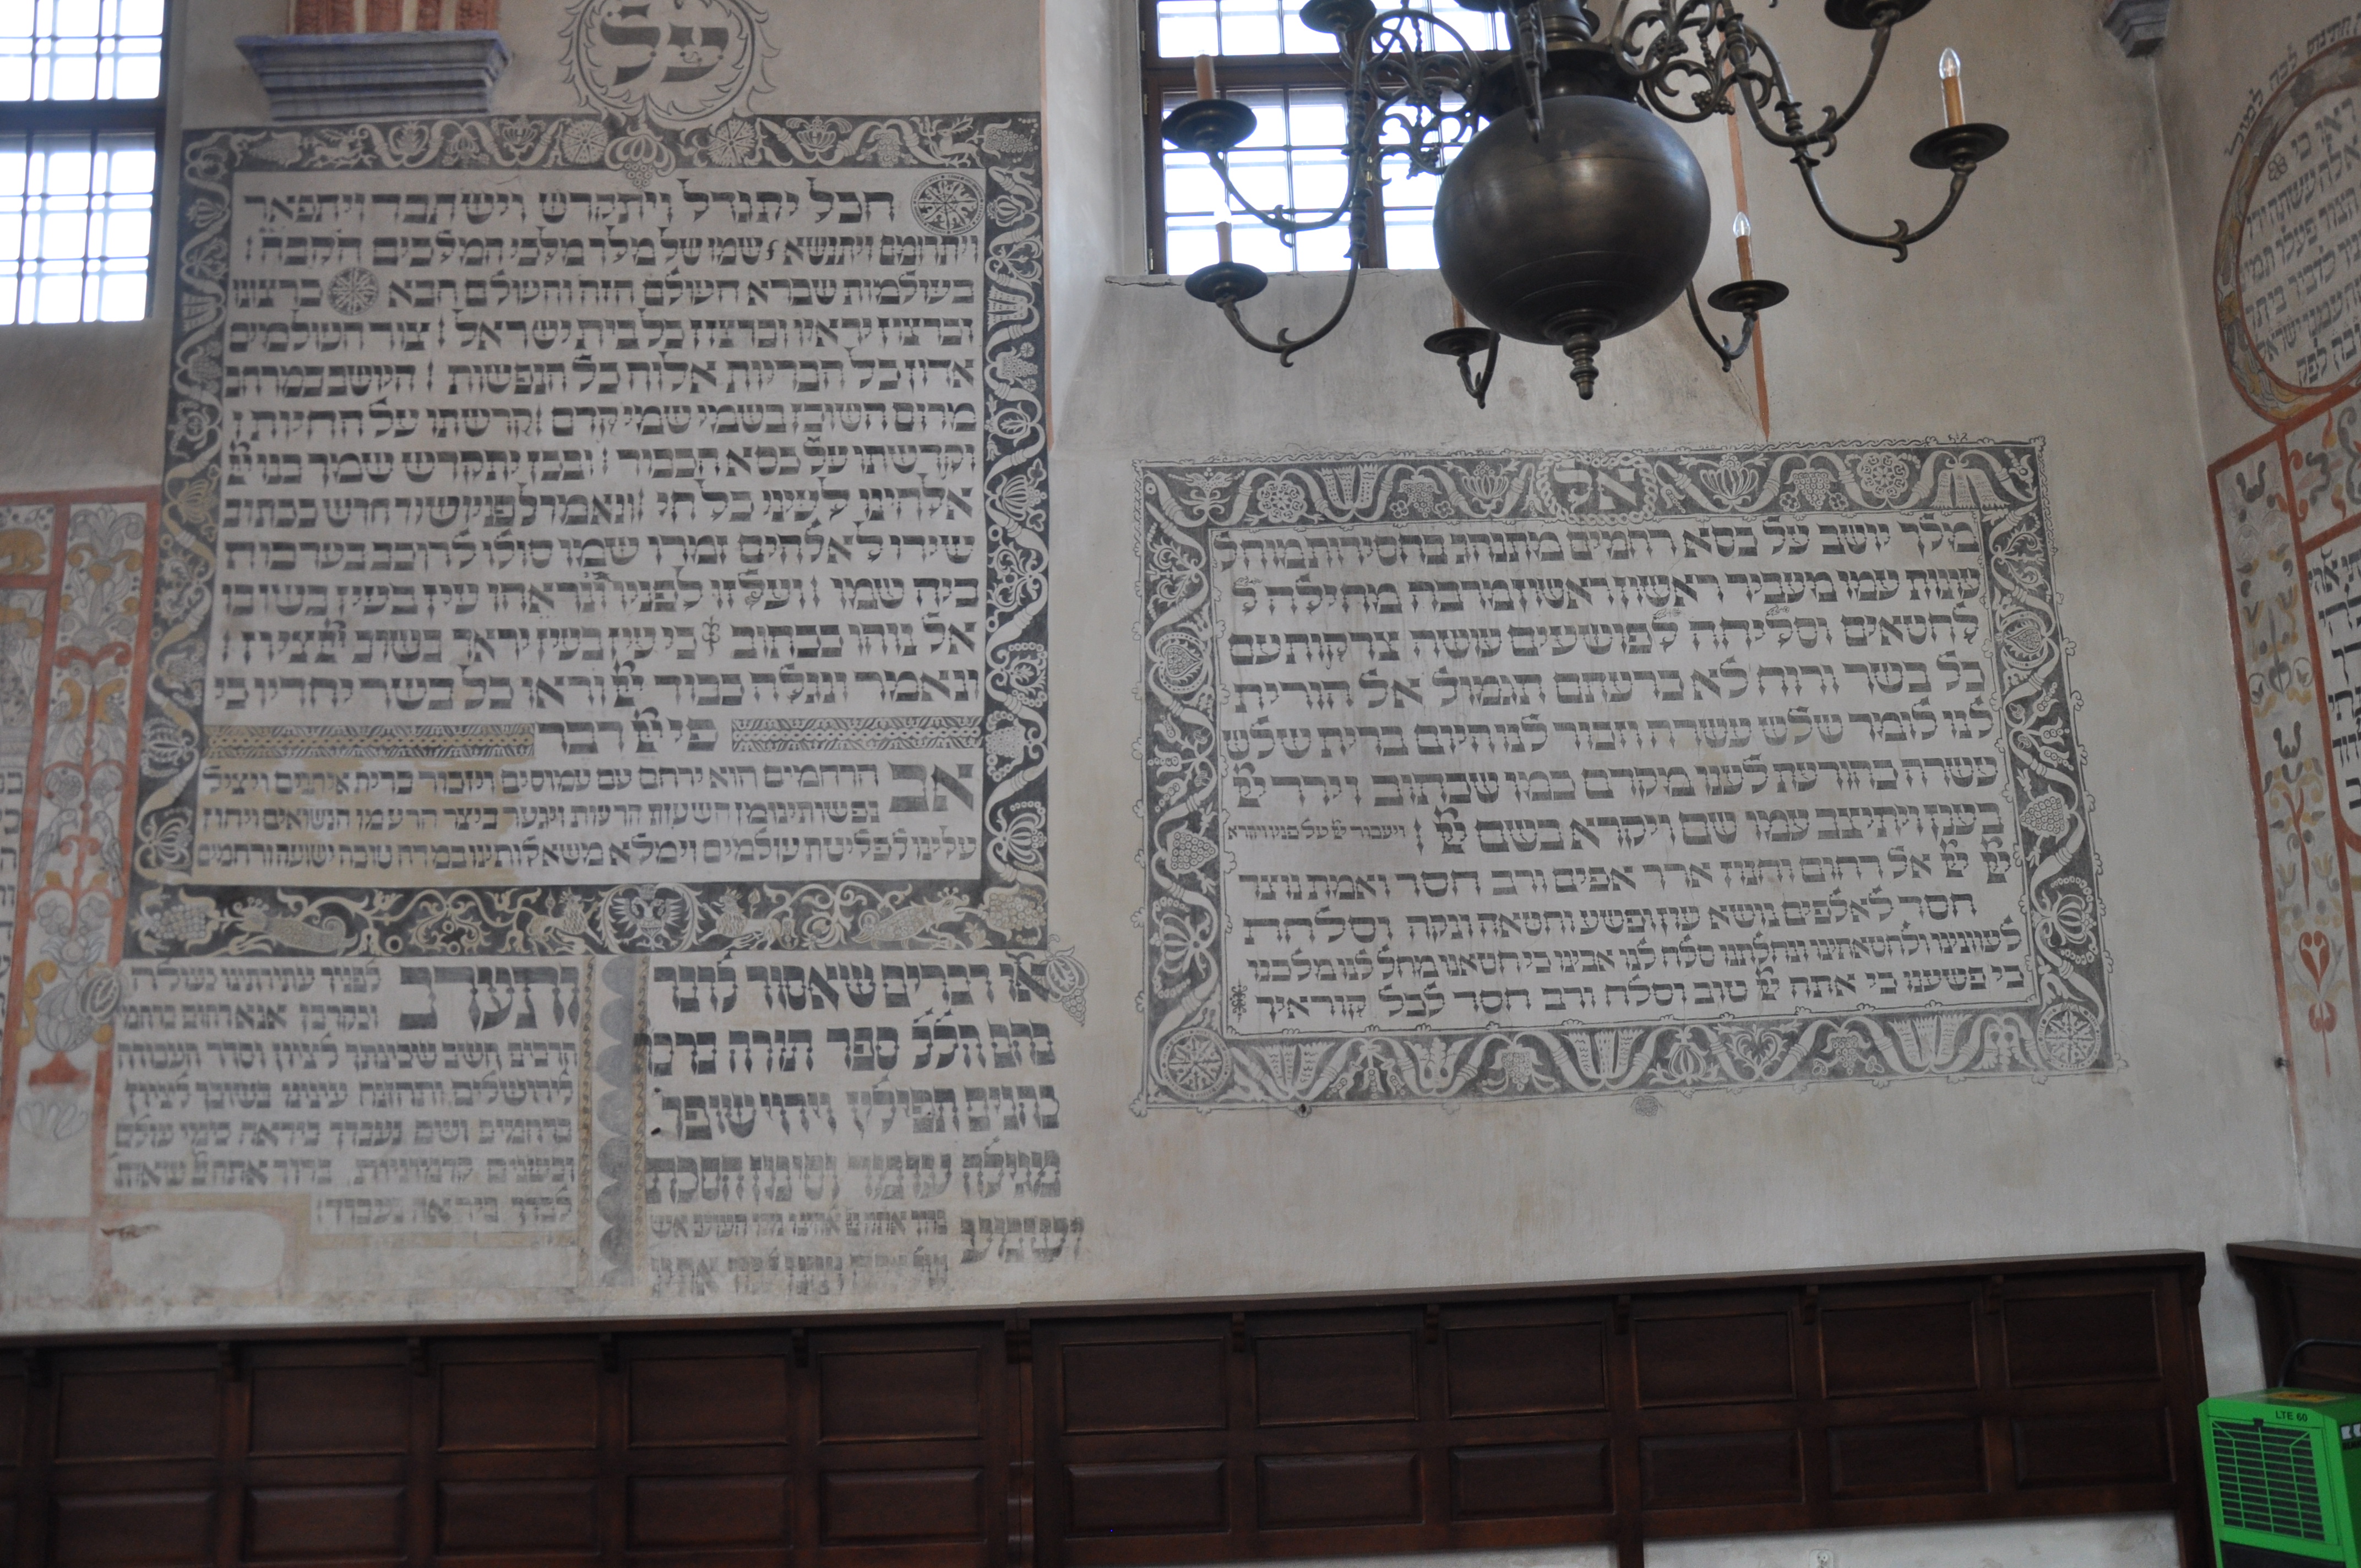 ראו כי
הצור פעלו תמי
אל
מלך יושב על כסא רחמים מתנהג בחסידות מוחל
עונות עמו מעביר ראשון ראשון מרבה מחילה ל
לחטאים וסליחה לפושעים עושה צדקות עם
כל בשר ורוח לא ברעתם תגמול אל הורית
לנו לומר שלש עשרה וזכור לנו היום ברית שלש
עשרה כהודעת לענו מקדם כמו שכתוב וירד יֹיֹ
בענן ויתיצב עמו שם ויקרא בשם יֹיֹ ׃ ויעבור יֹיֹ על פניו ויקרא
יֹיֹ יֹיֹ אל רחום וחנון ארך אפים ורב חסד ואמת נוצר
חסד לאלפים נושא עון ופשע וחטאה ונקה וסלחת
לעונינו ולחטאתינו ונחלתנו סלח לנו אבינו כי חטאנו מחל לנו מלכנו
כי פשענו כי אתה יֹיֹ טוב וסלח ורב חסד לכל קוראיך
על
הכל יתגדל ויתקדש וישתבח ויתפאר
ויתרומם ויתנשא שמו של מלך מלכי המלכים הקבה
בעולמות שברא העולם הזה והעולם הבא כרצונו
וכרצון יראיו וכרצון כל בית ישראל ׃ צור העולמים
אדון כל הבריות אלוה כל הנפשות ׃ היושב במרחבי
מרום השוכן בשמי שמי קדם וקדשתו על החיות ׃
וקדשתו על כסא הכבוד ׃ ובכן יתקדש שמך בנו יֹיֹ
אלהינו לעיני כל חי ׃ ונאמר לפניו שיר חדש ככתוב
שירו לאלהים זמרו שמו סולו לרוכב בערבות
ביה שמו ׃ ועלזו לפניו ונראהו עין בעין בשובו
אל נוהו ככתוב כי עין בעין יראו בשוב יֹיֹ ציון ׃
ונאמר ונגלה כבוד יֹיֹ וראו כל בשר יחדיו כי
פי יֹיֹ דבר
אב הרחמים הוא ירחם עם עמוסים ויזכור ברית איתנים ויציל
נפשותינו מן השעות הרעות ויגער ביצר הרע מן הנשואים ויחון
עלינו לפליטת עולמים וימלא משאלותינו במדה טובה ישועה ורחמים
או דברים שאסור לדבר
בהם הלל ספר תורה ברכו
כהנים תפילין ויהי שופר
מגילה עומר וסימן הסכת
ושמע
ותערב לפניך עתירתינו כעולה
וכקרבן אנא רחום ברחמיך
הרבים השב שכינתך לציון וסדר העבודה
לירושלים ותחזנה עינינו בשובך לציון
ברחמים ושם נעבדך ביראה כימי עולם
וכשנים קדמוניות
LTE 60